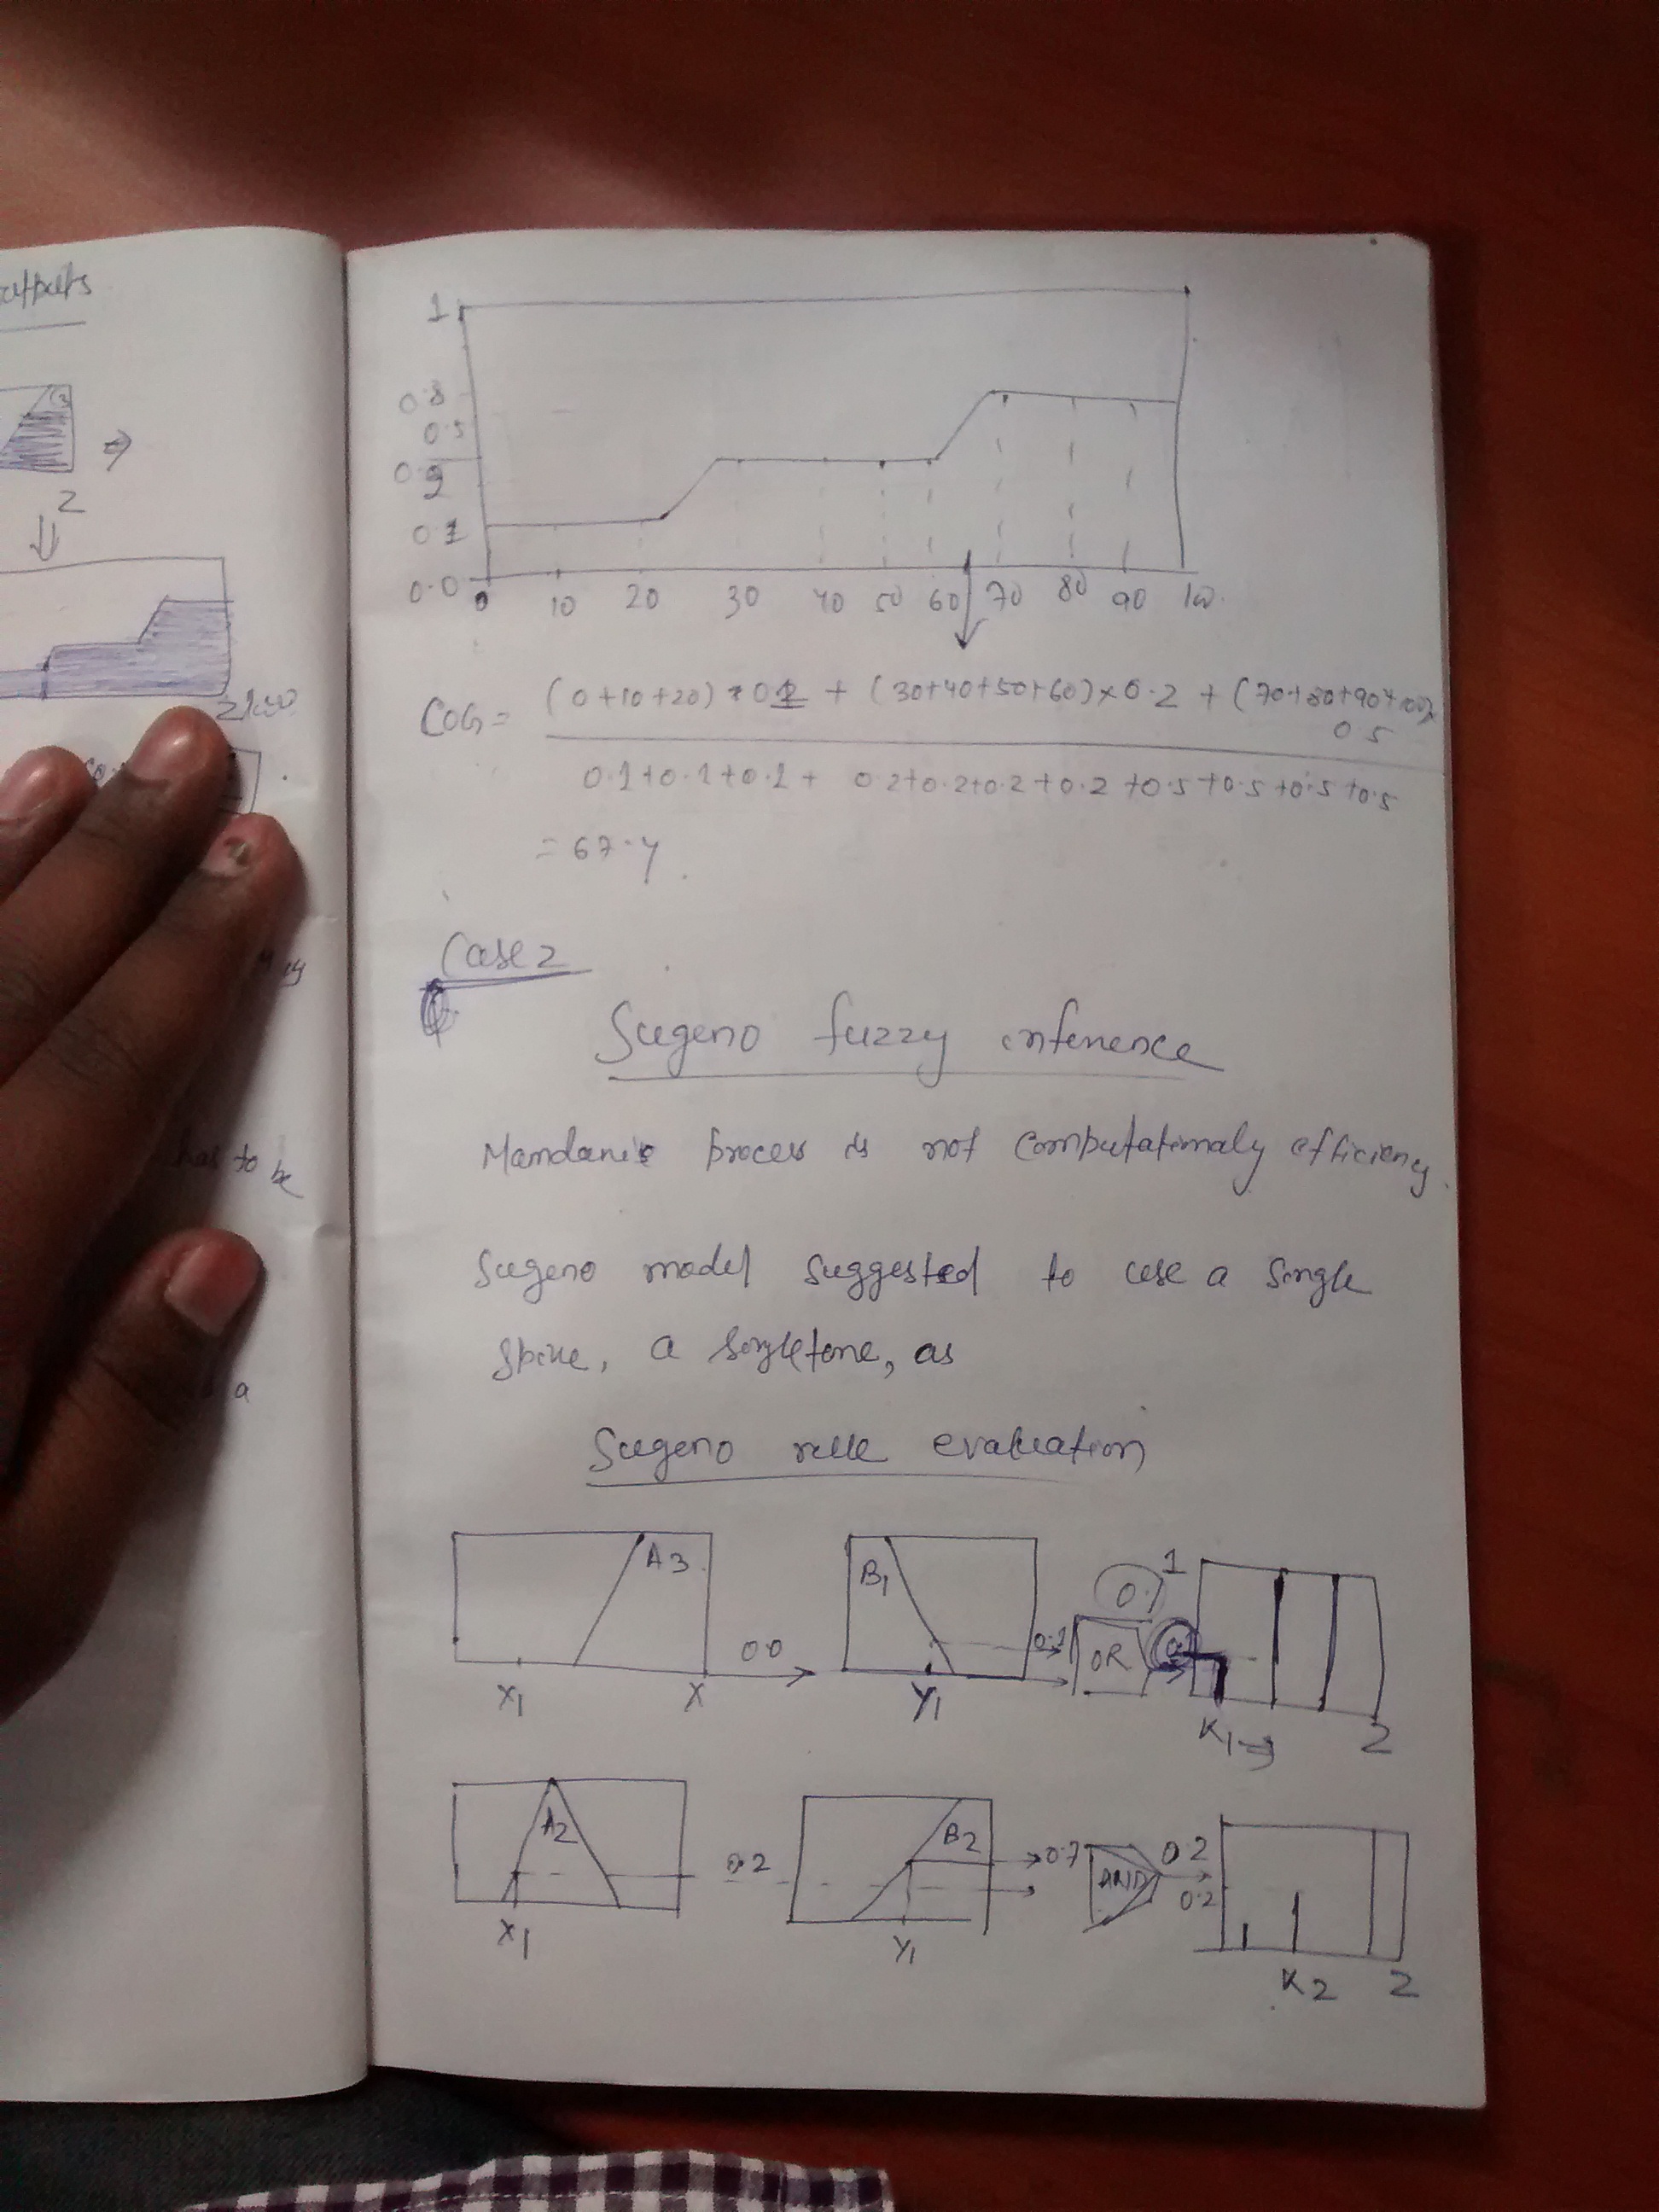 1
0.8
0.5
0.2
0.1
0.0
0 10 20 30 40 50 60 70 80 90 100
COG = (0+10+20) * 0.1 + (30+40+50+60) x 0.2 + (70+80+90+100) x
0.5
0.1+0.1+0.1+ 0.2+0.2+0.2+0.2+0.5+0.5+0.5+0.5
= 67.4
Case 2
Sugeno fuzzy inference
Mamdani's process is not computationaly efficieny.
Sugeno model suggested to use a single
spike, a singletone, as
Sugeno rule evaluation
A3 B1 0.1 1
0.0 0.1 OR 0.1
X1 X Y1 K1 Z
A2 B2
0.2 0.7 AND 0.2
0.2
X1 Y1 K2 Z
outputs
Z
has to be
a